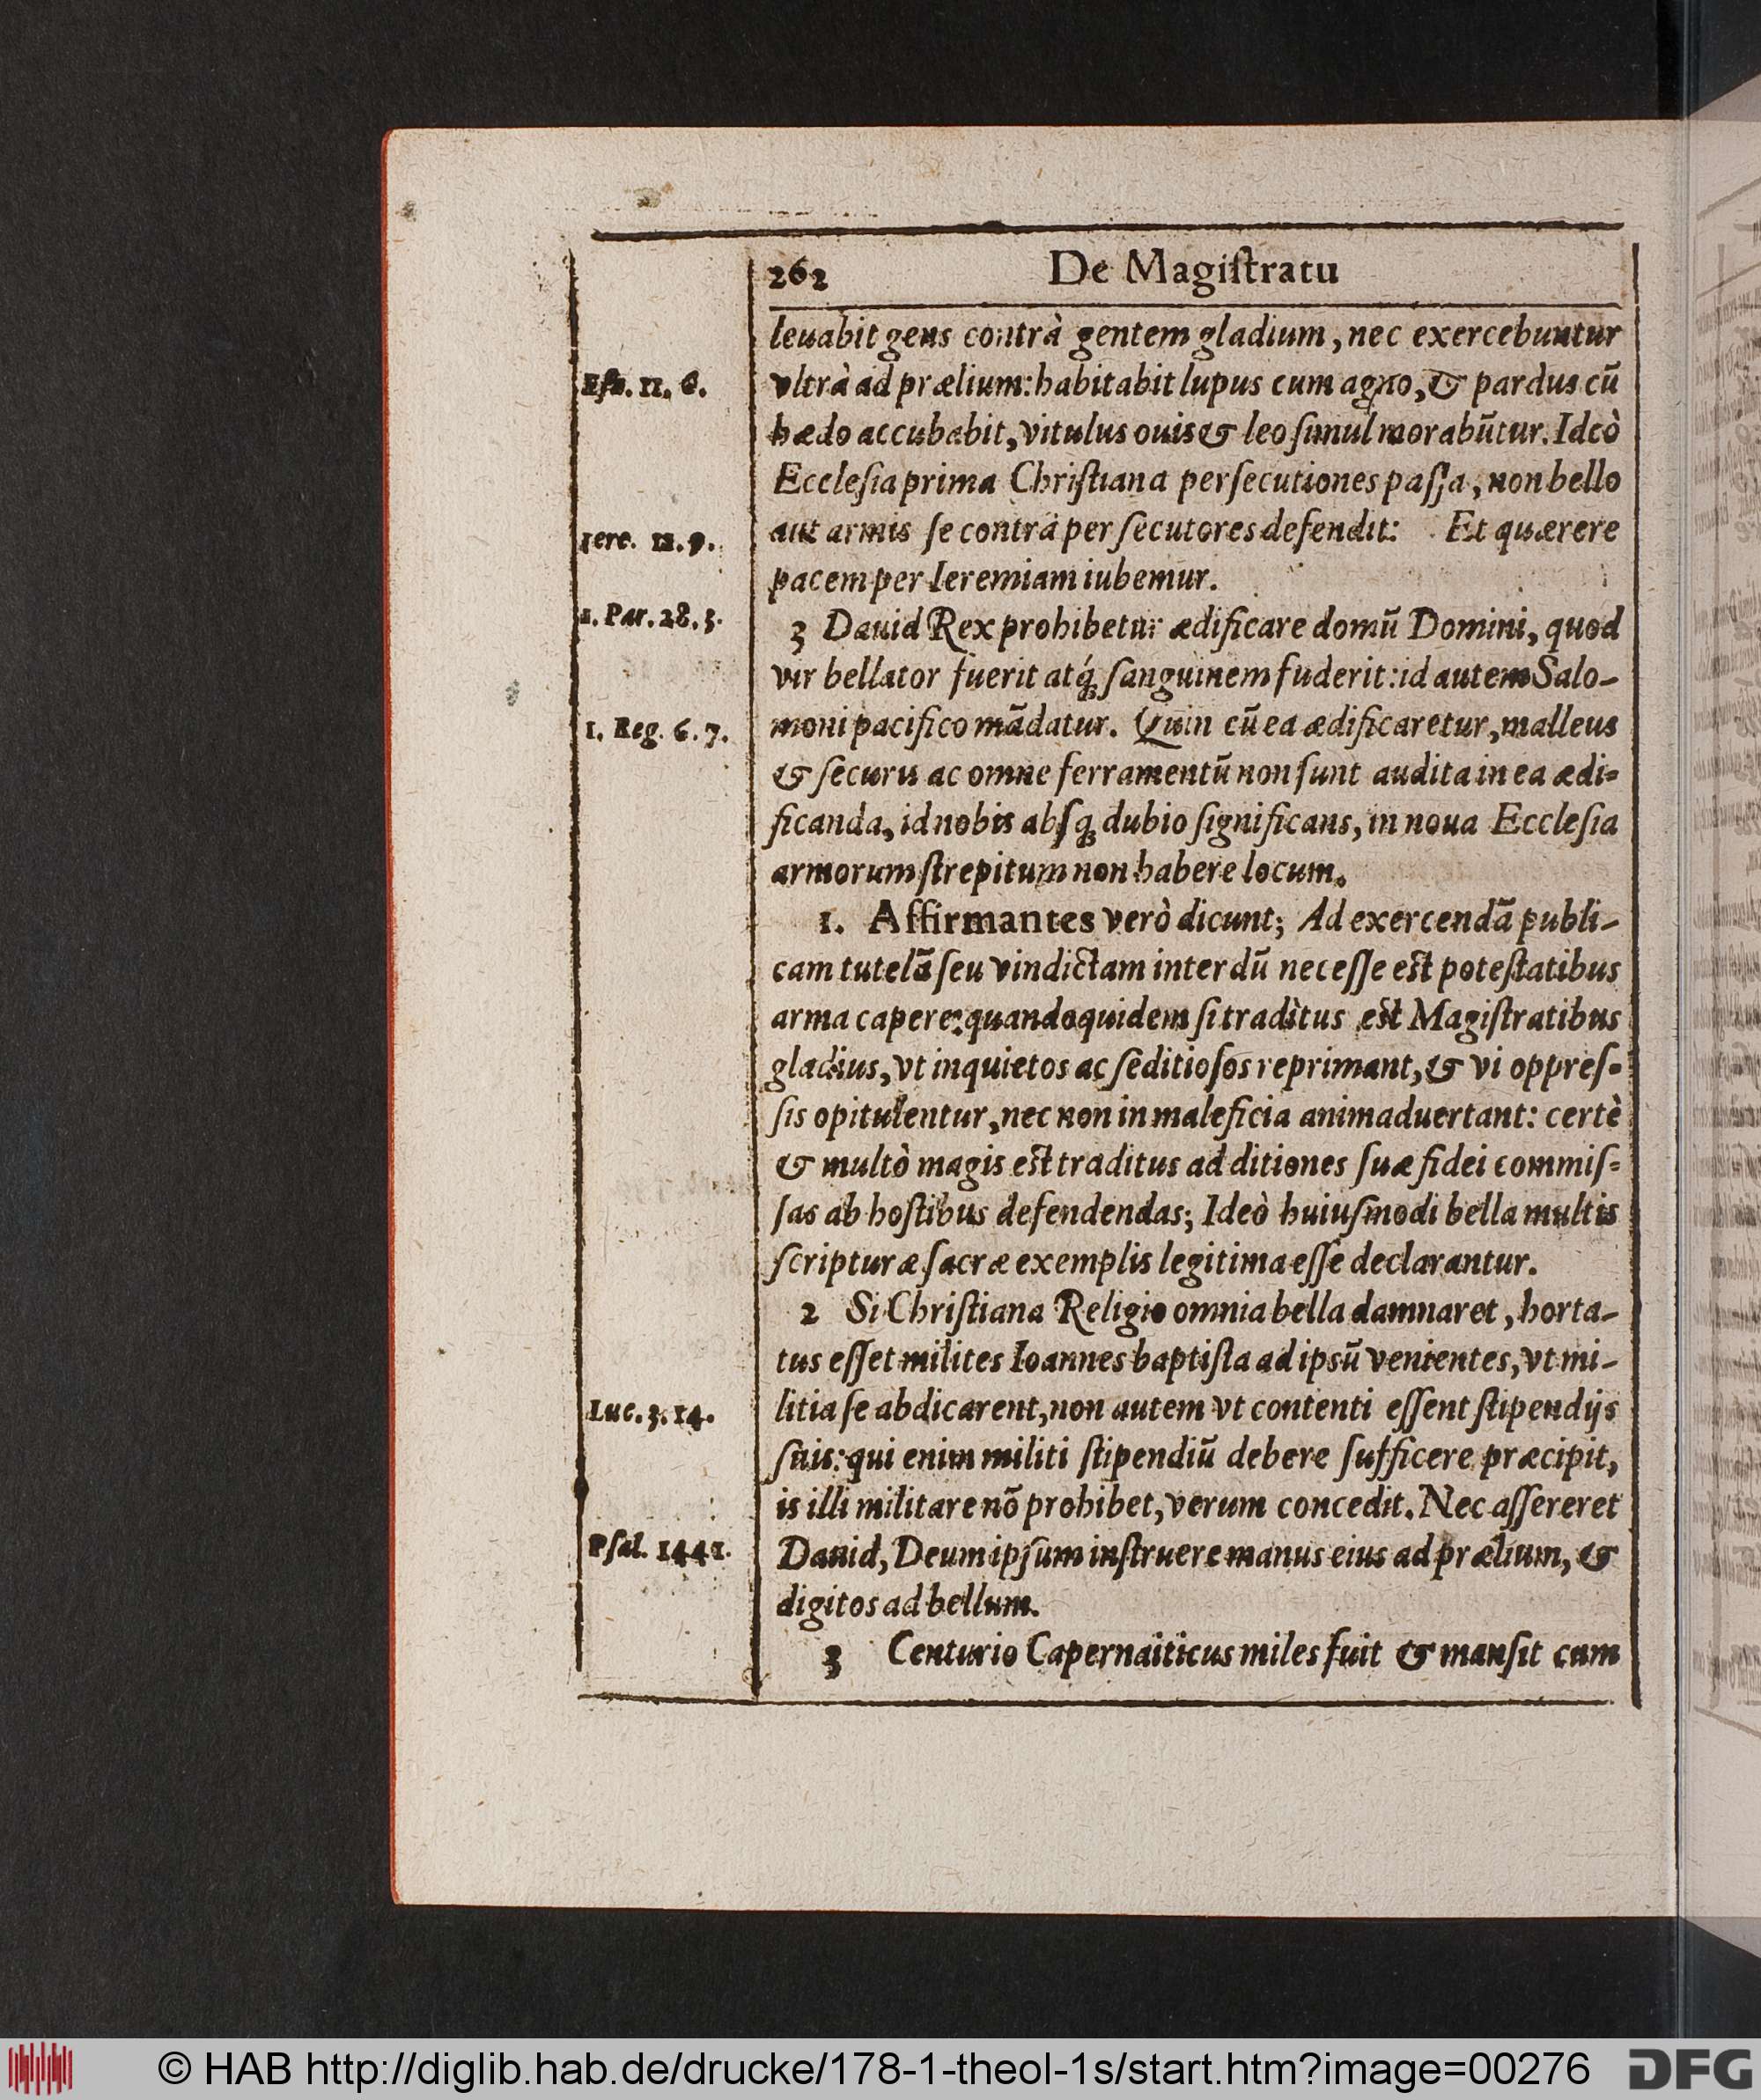 262 De Magiſtratu
leuabit gens contrà gentem gladium, nec exercebuntur
Eſa. 11. 6.
vltrà ad prælium: habitabit lupus cum agno, & pardus cũ
hædo accubabit, vitulus ouis & leo ſimul morabũtur. Ideò
Eccleſia prima Chriſtiana perſecutiones paſſa, non bello
aut armis ſe contrà perſecutores defendit: Et quærere
Iere. 12. 9.
pacem per Ieremiam iubemur.
1. Par. 28. 3.
3 Dauid Rex prohibetur ædificare domũ Domini, quod
vir bellator fuerit atq́; ſanguinem fuderit: id autem Salo-
1. Reg. 6. 7.
moni pacifico mãdatur. Quin cũ ea ædificaretur, malleus
& ſecuris ac omne ferramentũ non ſunt audita in ea ædi-
ficanda, id nobis abſq; dubio ſignificans, in noua Eccleſia
armorum ſtrepitum non habere locum.
1. Affirmantes verò dicunt; Ad exercendã publi-
cam tutelã ſeu vindictam interdũ neceſſe eſt poteſtatibus
arma capere: quandoquidem ſi traditus eſt Magiſtratibus
gladius, vt inquietos ac ſeditioſos reprimant, & vi oppreſ-
ſis opitulentur, nec non in maleficia animaduertant: certè
& multò magis eſt traditus ad ditiones ſuæ fidei commiſ-
ſas ab hoſtibus defendendas; Ideò huiuſmodi bella multis
ſcripturæ ſacræ exemplis legitima eſſe declarantur.
2 Si Chriſtiana Religio omnia bella damnaret, horta-
tus eſſet milites Ioannes baptiſta ad ipsũ venientes, vt mi-
Luc. 3. 14.
litia ſe abdicarent, non autem vt contenti eſſent ſtipendijs
ſuis: qui enim militi ſtipendiũ debere ſufficere præcipit,
is illi militare nõ prohibet, verum concedit. Nec aſſereret
Pſal. 144 1.
Dauid, Deum ipſum inſtruere manus eius ad prælium, &
digitos ad bellum.
3 Centurio Capernaiticus miles fuit & manſit cum
© HAB http://diglib.hab.de/drucke/178-1-theol-1s/start.htm?image=00276 DFG